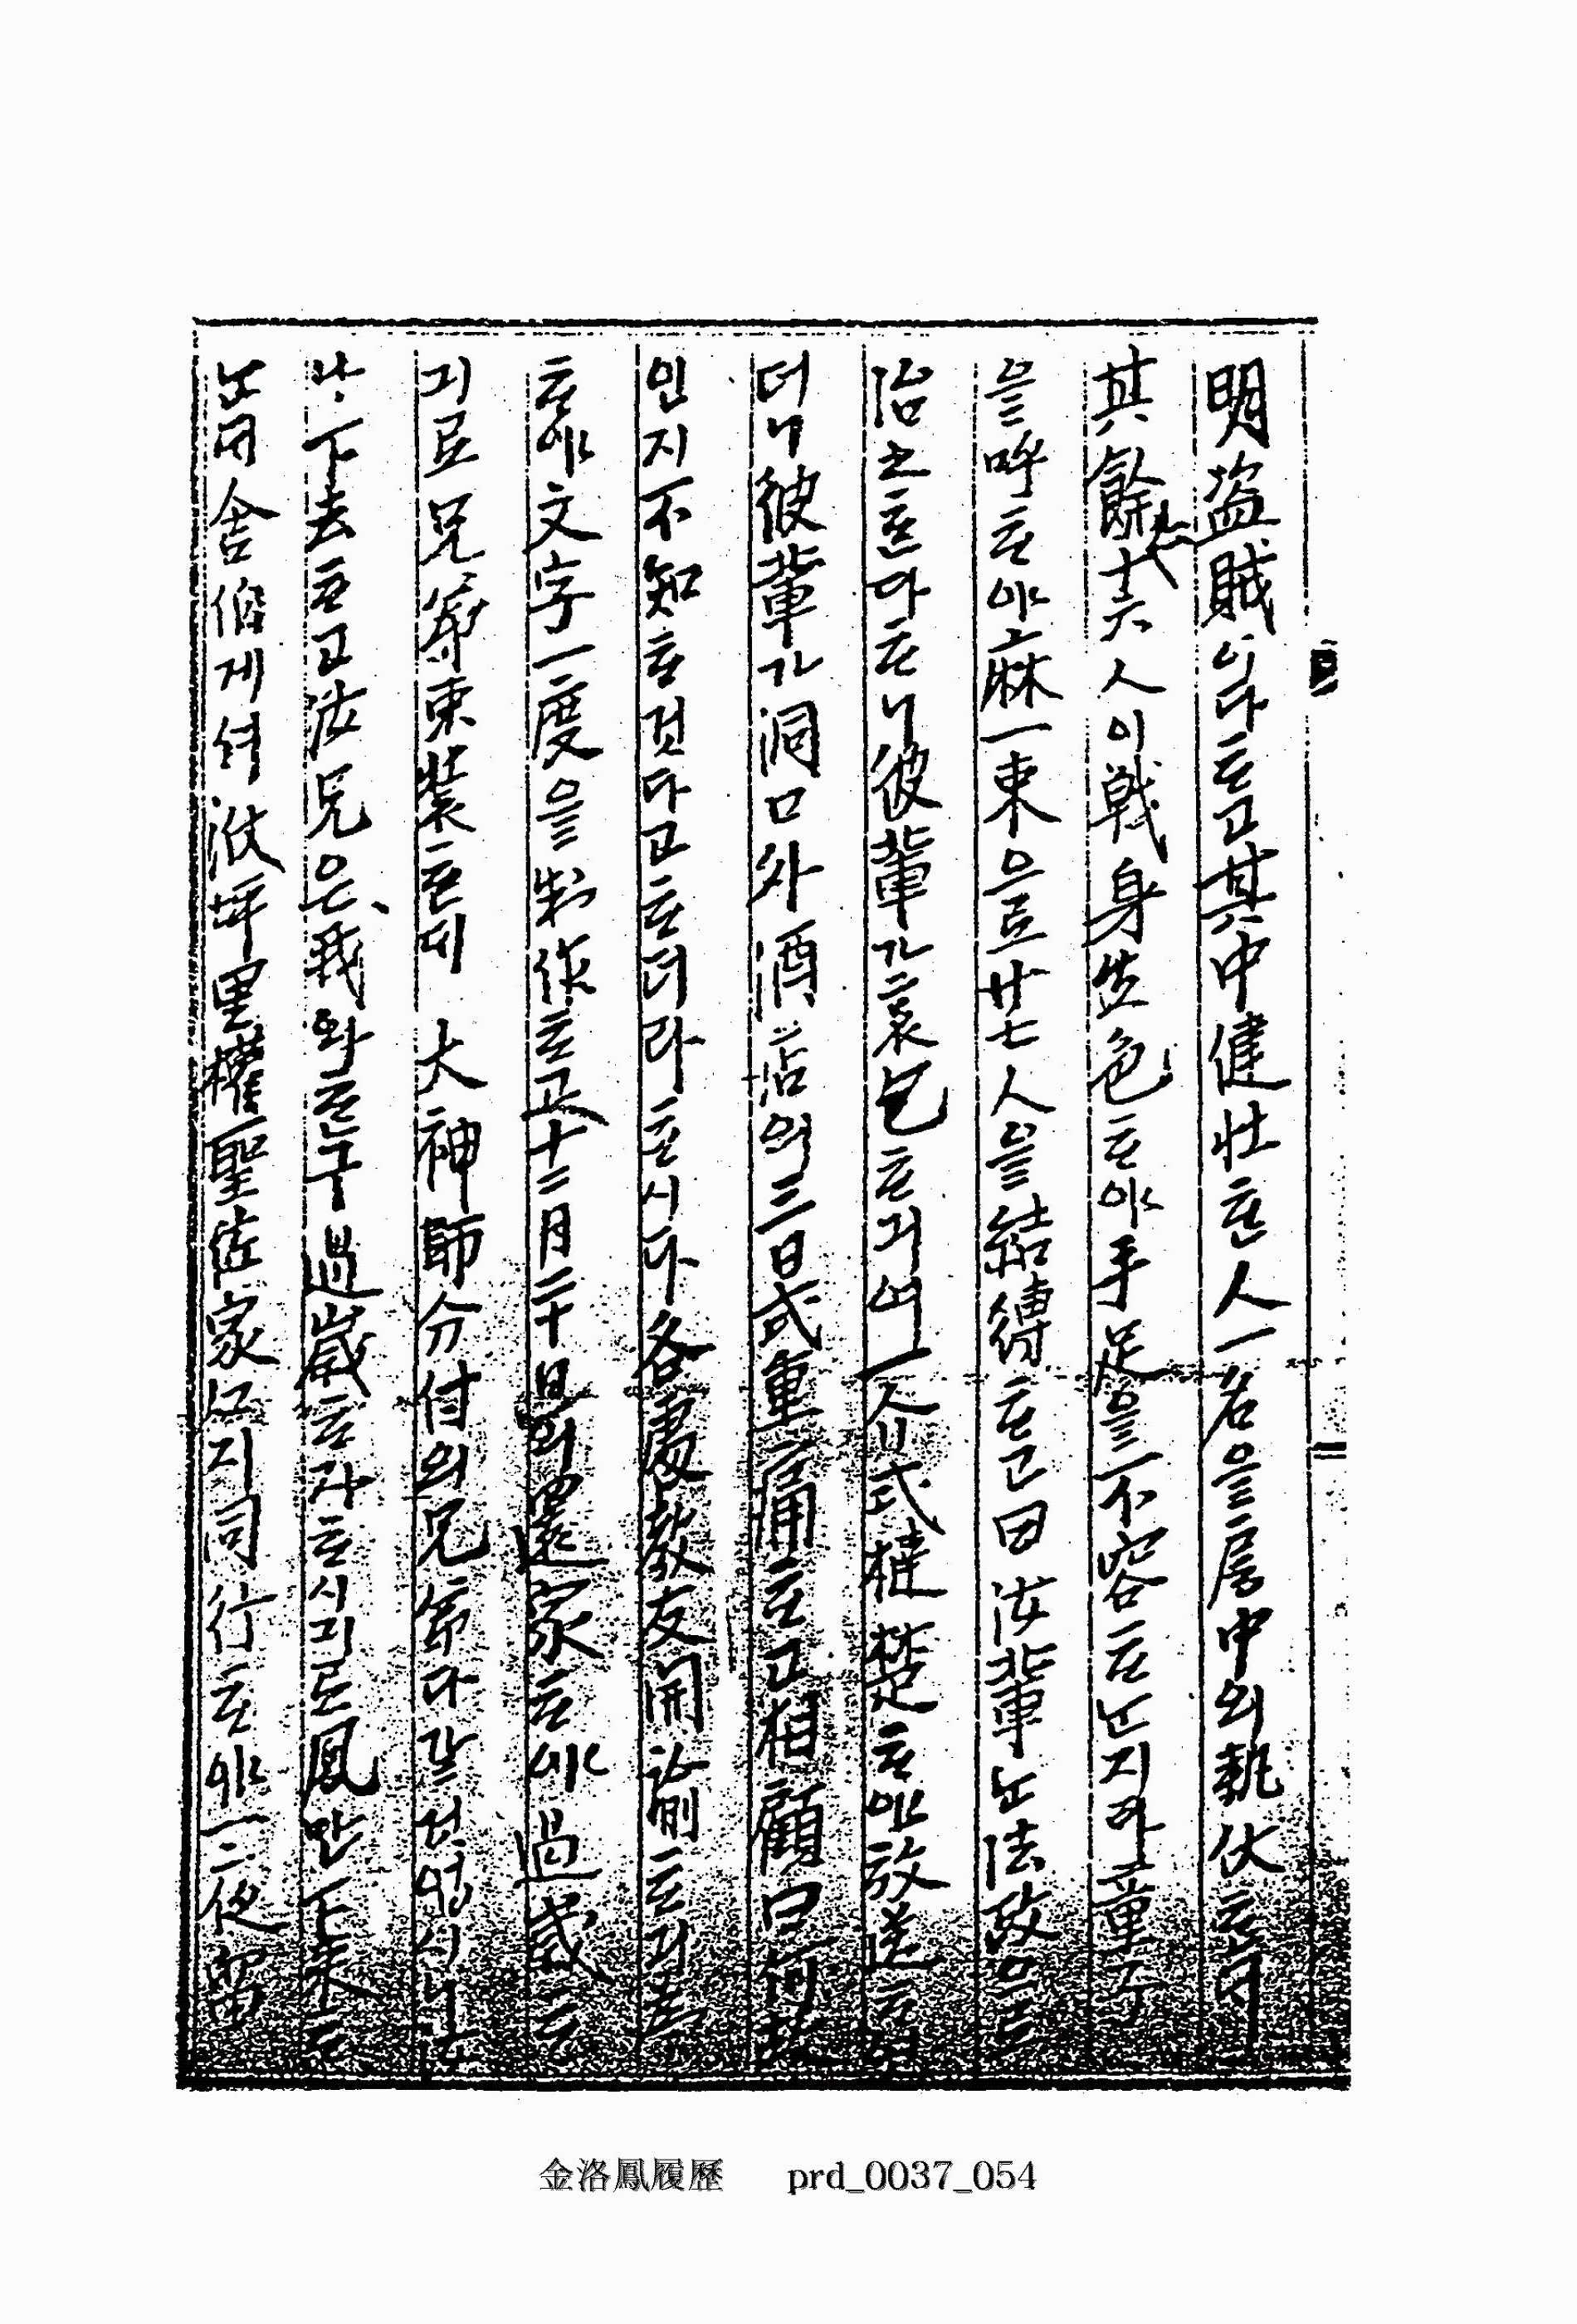 明盜賊이다ᄒᆞ고其中健壯ᄒᆞᆫ人一名을房中의執伏ᄒᆞ
其餘十六人이戰身失色ᄒᆞ야手足을不容ᄒᆞᄂᆞᆫ지라童子
을呼ᄒᆞ야麻一束으로廿七人을結縛ᄒᆞ고曰汝輩ᄂᆞᆫ法政으로
治之ᄒᆞᆫ다ᄒᆞ니彼輩가哀乞ᄒᆞ기의一人式檟楚ᄒᆞ야放送ᄒᆞ
더니彼輩가洞口外酒店의三日式重痛ᄒᆞ고相顧曰何故
인지不知ᄒᆞ것다고ᄒᆞ더라ᄒᆞ시다各處敎友開諭ᄒᆞ기
ᄒᆞ야文字一度을製作ᄒᆞ고十二月二十日의還家ᄒᆞ야過歲ᄒᆞ
기로兄等束裝ᄒᆞᆫᄃᆡ 大神師分付의兄等다갈것업시니
나下去ᄒᆞ고法兄은我와ᄒᆞᆫ구過歲ᄒᆞ라ᄒᆞ시기로鳳만下來ᄒᆞ
ᄂᆞᆫ同舍伯게셔 坪里權聖佐家ᄭᆞ지同行ᄒᆞ야一夜留
金洛鳳履歷 prd_0037_054